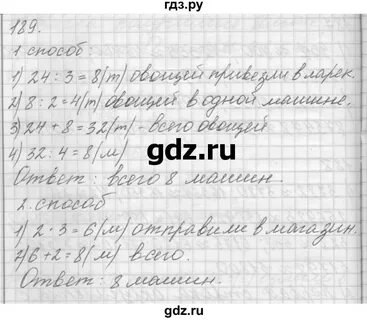 гдз.ру
189.
1 способ:
1) 24 : 3 = 8(т) овощей привезли в ларек.
2) 8 : 2 = 4(т) овощей в одной машине.
3) 24 + 8 = 32(т) - всего овощей
4) 32 : 4 = 8(м)
Ответ: всего 8 машин.
2. способ
1) 2 · 3 = 6(м) отправили в магазин.
2) 6 + 2 = 8(м) всего.
Ответ: 8 машин.
gdz.ru
gdz.ru
gdz.ru